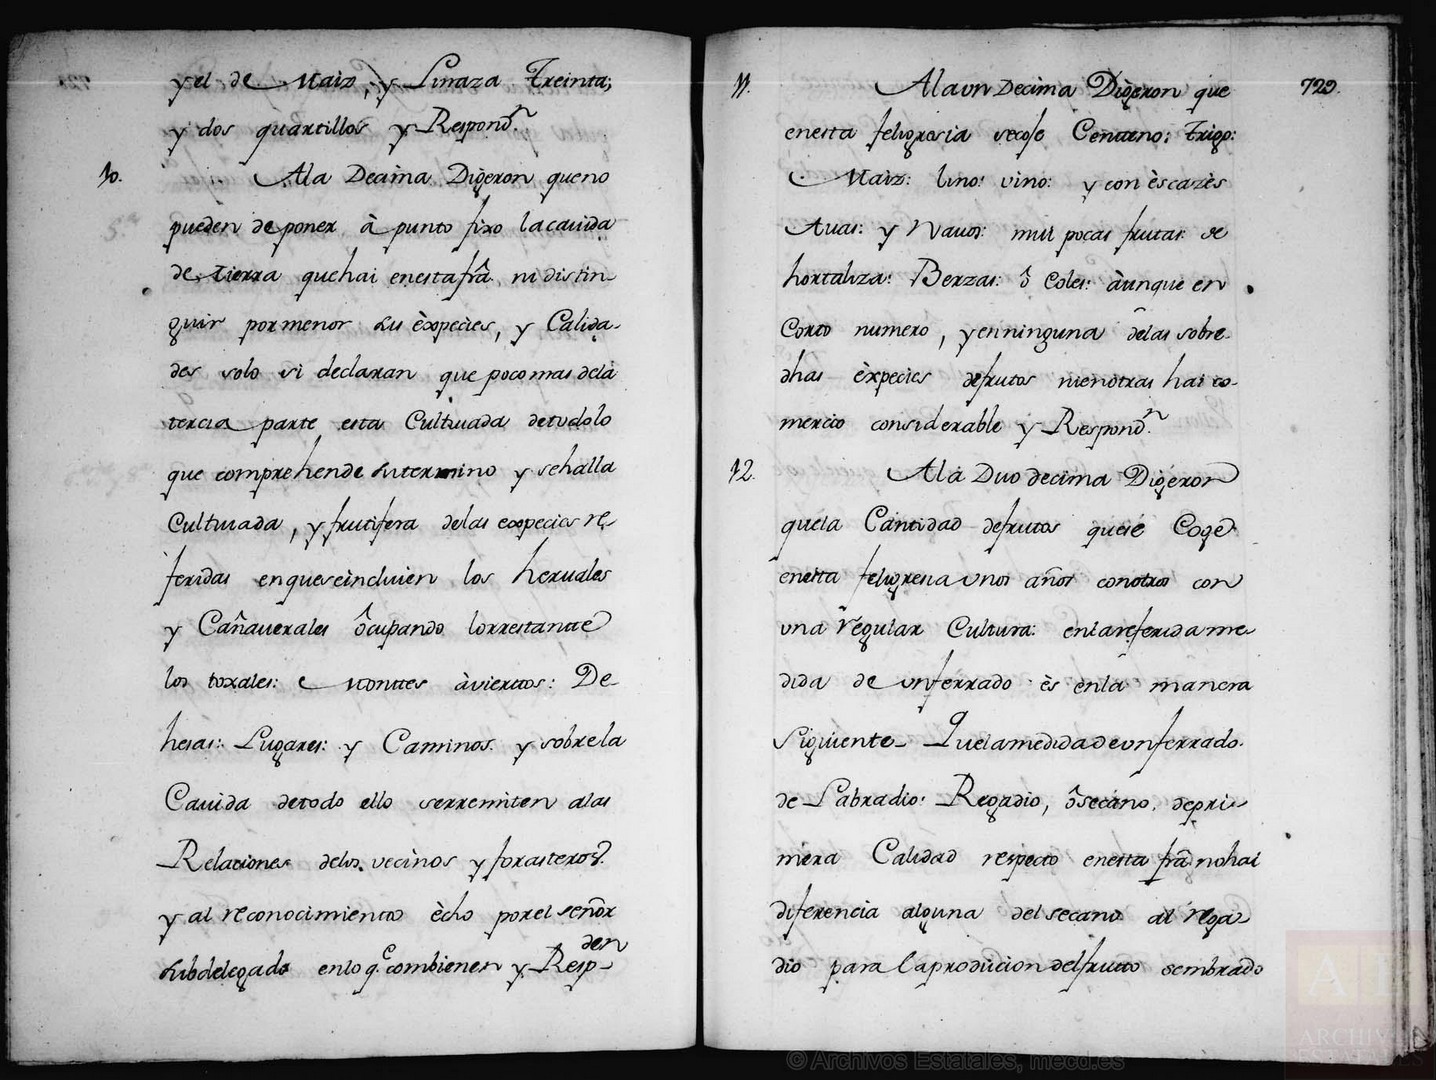 y el de Maiz, y Linaza Treinta;
y dos quartillos y Respond.n
10. Ala Decima Digeron queno
pueden deponer à punto fixo lacauida
de tierra quehai enestafrâ ni distin-
guir pormenor su èxpecies, y Calida-
des solo si declaran que pocomas dela
tercia parte esta Cultiuada detodolo
que comprehende sutermino y sehalla
Cultiuada, y frutifera delas expecies re-
feridas enqueseincluien los heruales
y Cañauerales ôcupando lorrestante
los toxales: Montes àviertos: De-
hesas: Lugares: y Caminos y sobrela
Cauida detodo ello serremiten alas
Relaciones delos vecinos y forasteros
y al reconocimiento ècho porel señor
Subdelegado enlo q.e combienen y Resp-
den
11. Alaun Decima Digeron que 729.
enesta feligresia secoje Centeno: Trigo:
Maiz: lino: vino: y con èscazès
Auas: y Nauos: mui pocas frutas se
hortaliza: Berzas: ô Coles: àunque en
Corto numero, y enninguna delas sobre-
dhas èxpecies defrutos nienotras hai co-
mercio considerable y Respond.n
12. Ala Duo decima Digeron
quela Cantidad defrutos quese Coge
enesta feligresia unos años conotros con
una regular Cultura: enlareferida me-
dida de unferrado ès enla manera
Siguiente- Quelamedidadeunferrado
de Labradio: Regadio, ôsecano, depri-
mera Calidad respecto enesta frâ nohai
diferencia alguna delsecano al rega-
dio para laproducion delfruto sembrado
© Archivos Estatales, mecd.es
AE
ARCHIVOS
ESTATALES